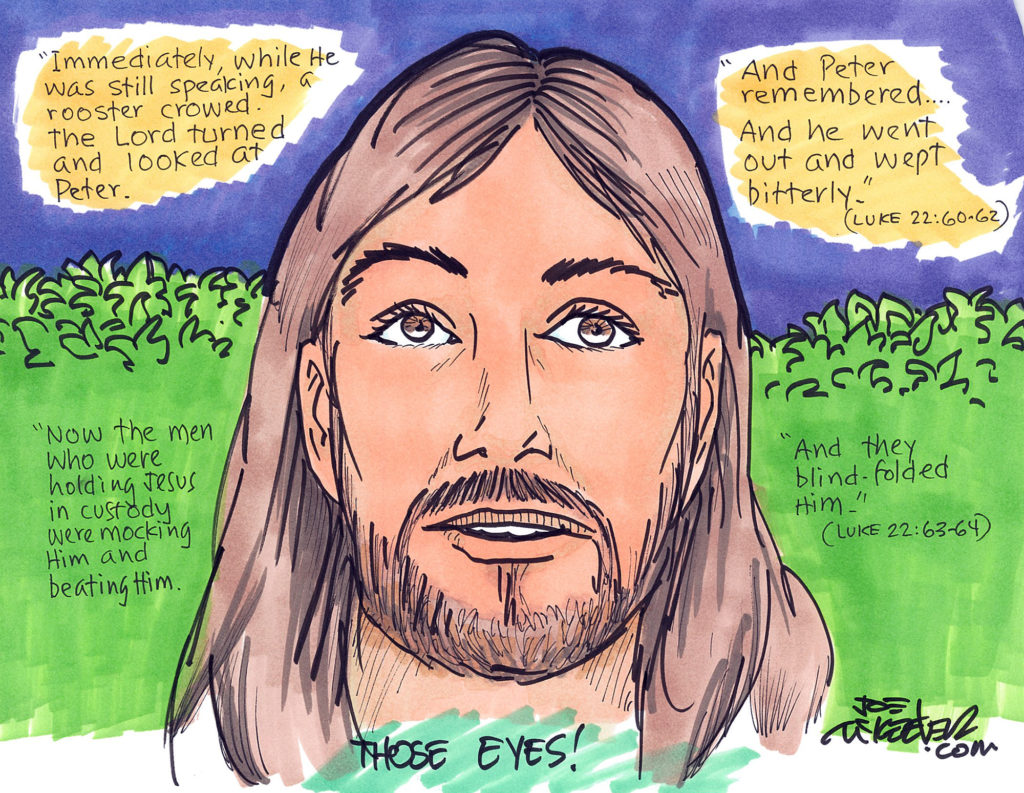 "Immediately, while He
was still speaking, a
rooster crowed.
The Lord turned
and looked at
Peter.
"And Peter
remembered....
And he went
out and wept
bitterly."
(LUKE 22:60-62)
"Now the men
who were
holding Jesus
in custody
were mocking
Him and
beating Him.
"And they
blind-folded
Him."
(LUKE 22:63-64)
THOSE EYES!
JOE
McKEEVER
.com